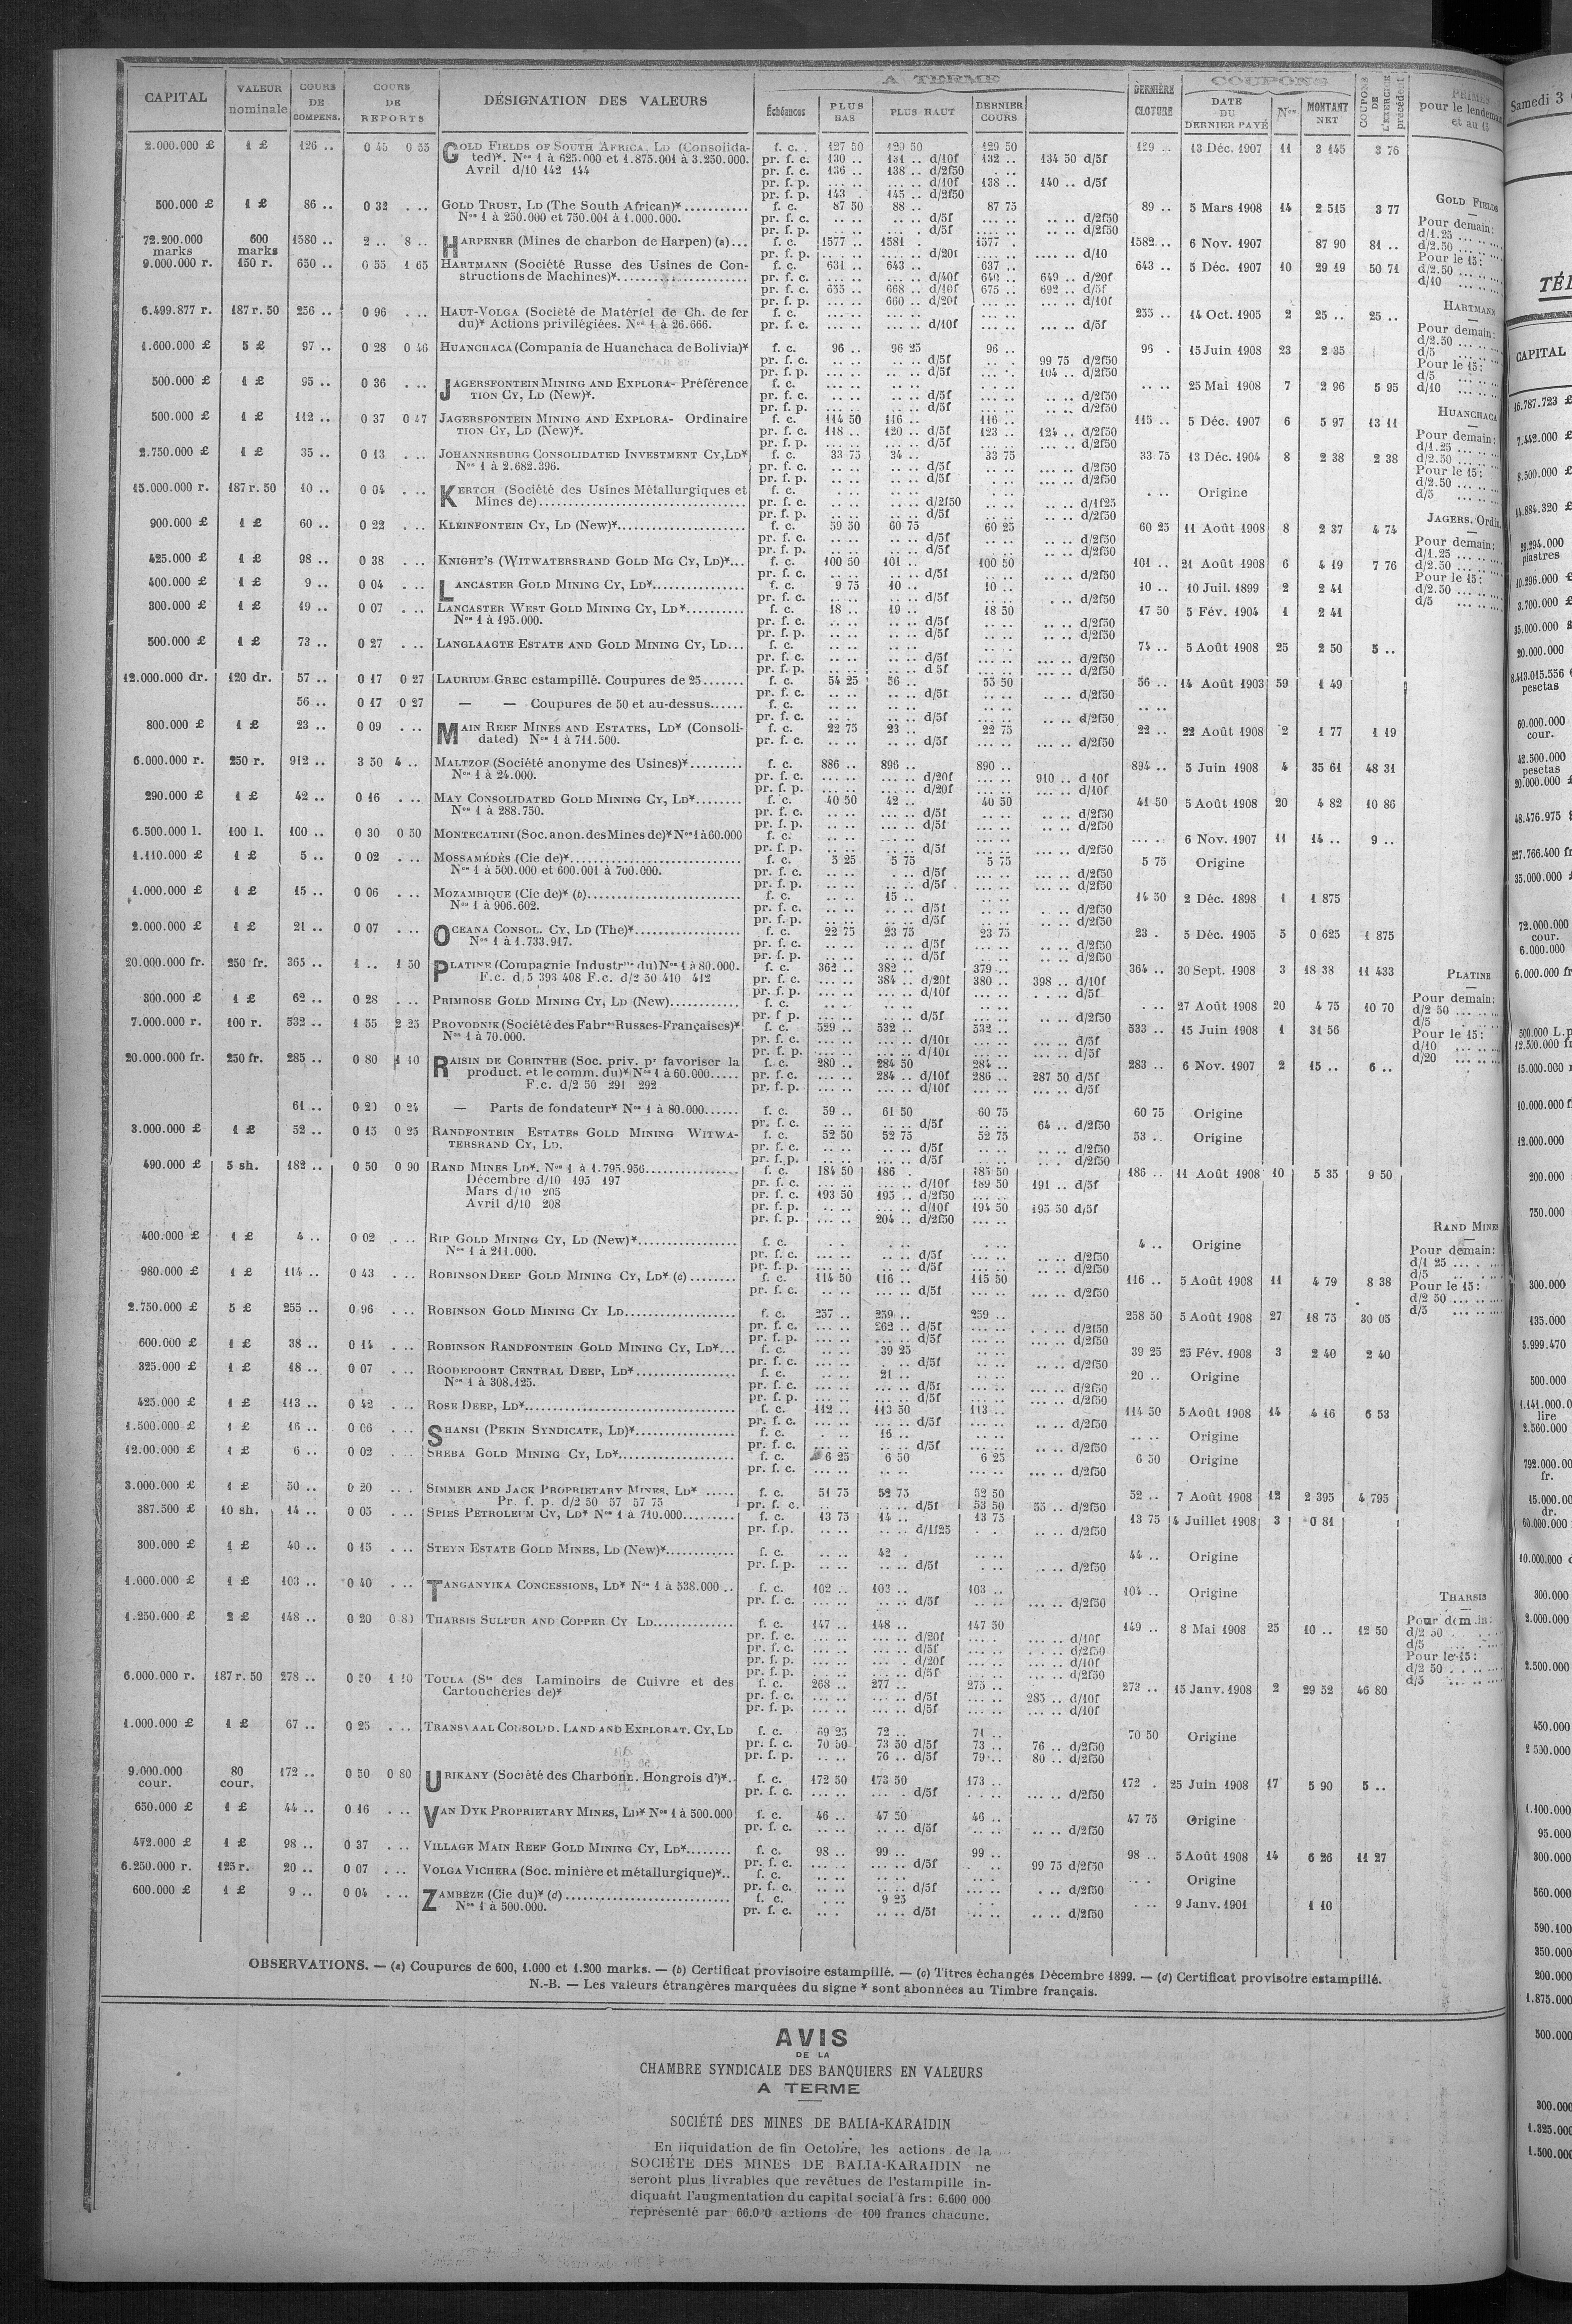 CAPITAL VALEUR nominale COURS DE COMPENS. COURS DE REPORTS DÉSIGNATION DES VALEURS A TERME Échéances PLUS BAS PLUS HAUT DERNIER COURS DERNIÈRE CLOTURE COUPONS DATE DU DERNIER PAYÉ Nos MONTANT NET COUPONS DE L'EXERCICE précédent PRIMES pour le lendemain et au 15
2.000.000 £ 1 £ 126 .. 0 45 0 55 GOLD FIELDS OF SOUTH AFRICA, LD (Consolida- f. c. 127 50 129 50 129 50 129 .. 13 Déc. 1907 11 3 145 3 76
ted)*. Nos 1 à 625.000 et 1.875.001 à 3.250.000. pr. f. c. 130 .. 131 .. d/10f 132 .. 134 50 d/5f
Avril d/10 142 144 pr. f. c. 136 .. 138 .. d/2f50
pr. f. p. .. .. .. .. d/10f 138 .. 140 .. d/5f
pr. f. p. 143 . 145 .. d/2f50
500.000 £ 1 £ 86 .. 0 32 . .. GOLD TRUST, LD (The South African)* f. c. 87 50 88 .. 87 75 89 .. 5 Mars 1908 14 2 515 3 77
Nos 1 à 250.000 et 750.001 à 1.000.000. pr. f. c. d/5f d/2f50
pr. f. p. d/5f d/2f50
72.200.000 marks 600 marks 1580 .. 2 .. 8 .. HARPENER (Mines de charbon de Harpen) (a)... f. c. 1577 .. 1581 . 1577 . 1582 .. 6 Nov. 1907 87 90 81 ..
pr. f. p. d/20f d/10
9.000.000 r. 150 r. 650 .. 0 55 1 65 HARTMANN (Société Russe des Usines de Con- f. c. 631 .. 643 .. 637 .. 643 .. 5 Déc. 1907 10 29 19 50 71
structions de Machines)*. pr. f. c. d/40f 640 .. 649 .. d/20f
pr. f. c. 655 .. 668 .. d/10f 675 .. 692 .. d/5f
pr. f. p. 660 .. d/20f d/10f
6.499.877 r. 187 r. 50 256 .. 0 96 . .. HAUT-VOLGA (Société de Matériel de Ch. de fer f. c. 255 .. 14 Oct. 1905 2 25 .. 25 ..
du)* Actions privilégiées. Nos 1 à 26.666. pr. f. c. d/10f d/5f
1.600.000 £ 5 £ 97 .. 0 28 0 46 HUANCHACA (Compania de Huanchaca de Bolivia)* f. c. 96 .. 96 25 96 .. 96 . 15 Juin 1908 23 2 35
pr. f. c. d/5f 99 75 d/2f50
pr. f. p. d/5f 104 .. d/2f50
500.000 £ 1 £ 95 .. 0 36 . .. JAGERSFONTEIN MINING AND EXPLORA- Préférence f. c. 25 Mai 1908 7 2 96 5 95
TION CY, LD (New)*. pr. f. c. d/5f d/2f50
pr. f. p. d/5f d/2f50
500.000 £ 1 £ 112 .. 0 37 0 47 JAGERSFONTEIN MINING AND EXPLORA- Ordinaire f. c. 114 50 116 .. 116 .. 115 .. 5 Déc. 1907 6 5 97 13 11
TION CY, LD (New)*. pr. f. c. 118 .. 120 .. d/5f 123 .. 124 .. d/2f50
pr. f. p. d/5f d/2f50
2.750.000 £ 1 £ 35 .. 0 13 . .. JOHANNESBURG CONSOLIDATED INVESTMENT CY, LD* f. c. 33 75 34 .. 33 75 33 75 13 Déc. 1904 8 2 38 2 38
Nos 1 à 2.682.396. pr. f. c. d/5f d/2f50
pr. f. p. d/5f d/2f50
15.000.000 r. 187 r. 50 10 .. 0 04 . .. KERTCH (Société des Usines Métallurgiques et f. c. Origine
Mines de) pr. f. c. d/2f50 d/1f25
pr. f. p. d/5f d/2f50
900.000 £ 1 £ 60 .. 0 22 . .. KLEINFONTEIN CY, LD (New)* f. c. 59 50 60 75 60 25 60 25 11 Août 1908 8 2 37 4 74
pr. f. c. d/5f d/2f50
pr. f. p. d/5f d/2f50
425.000 £ 1 £ 98 .. 0 38 . .. KNIGHT'S (WITWATERSRAND GOLD MG CY, LD)*... f. c. 100 50 101 .. 100 50 101 .. 21 Août 1908 6 4 19 7 76
pr. f. c. d/5f d/2f50
400.000 £ 1 £ 9 .. 0 04 . .. LANCASTER GOLD MINING CY, LD* f. c. 9 75 10 .. 10 .. 10 .. 10 Juil. 1899 2 2 41
pr. f. c. d/5f d/2f50
300.000 £ 1 £ 19 .. 0 07 . .. LANCASTER WEST GOLD MINING CY, LD* f. c. 18 .. 19 .. 18 50 17 50 5 Fév. 1904 1 2 41
Nos 1 à 195.000. pr. f. c. d/5f d/2f50
pr. f. p. d/5f d/2f50
500.000 £ 1 £ 73 .. 0 27 . .. LANGLAAGTE ESTATE AND GOLD MINING CY, LD... f. c. 74 .. 5 Août 1908 25 2 50 5 ..
pr. f. c. d/5f d/2f50
pr. f. p. d 5f d/2f50
12.000.000 dr. 120 dr. 57 .. 0 17 0 27 LAURIUM GREC estampillé. Coupures de 25 f. c. 54 25 56 .. 55 50 56 .. 14 Août 1903 59 1 49
pr. f. c. d/5f d/2f50
56 .. 0 17 0 27 — — Coupures de 50 et au-dessus f. c.
pr. f. c. d/5f d/2f50
800.000 £ 1 £ 23 .. 0 09 . .. MAIN REEF MINES AND ESTATES, LD* (Consoli- f. c. 22 75 23 .. 22 75 22 .. 22 Août 1908 2 1 77 1 19
dated) Nos 1 à 711.500. pr. f. c. d/5f d/2f50
6.000.000 r. 250 r. 912 .. 3 50 4 .. MALTZOF (Société anonyme des Usines)* f. c. 886 .. 896 .. 890 .. 894 .. 5 Juin 1908 4 35 61 48 31
Nos 1 à 24.000. pr. f. c. d/20f 910 .. d 10f
pr. f. p. d/20f d/10f
290.000 £ 1 £ 42 .. 0 16 . .. MAY CONSOLIDATED GOLD MINING CY, LD* f. c. 40 50 42 .. 40 50 41 50 5 Août 1908 20 4 82 10 86
Nos 1 à 288.750. pr. f. c. d/5f d/2f50
pr. f. p. d/5f d/2f50
6.500.000 l. 100 l. 100 .. 0 30 0 50 MONTECATINI (Soc. anon. des Mines de)* Nos 1 à 60.000 f. c. 6 Nov. 1907 11 14 .. 9 ..
pr. f. p. d/5f d/2f50
1.110.000 £ 1 £ 5 .. 0 02 . .. MOSSAMÉDÈS (Cie de)* f. c. 5 25 5 75 5 75 5 75 Origine
Nos 1 à 500.000 et 600.001 à 700.000. pr. f. c. d/5f d/2f50
pr. f. p. d/5f d/2f50
1.000.000 £ 1 £ 15 .. 0 06 . .. MOZAMBIQUE (Cie de)* (b) f. c. 15 .. 14 50 2 Déc. 1898 1 1 875
Nos 1 à 906.602. pr. f. c. d/5f d/2f50
pr. f. p. d/5f d/2f50
2.000.000 £ 1 £ 21 .. 0 07 . .. OCEANA CONSOL. CY, LD (The)* f. c. 22 75 23 75 23 75 23 . 5 Déc. 1905 5 0 625 1 875
Nos 1 à 1.733.917. pr. f. c. d/5f d/2f50
pr. f. p. d/5f d/2f50
20.000.000 fr. 250 fr. 365 .. 1 .. 1 50 PLATINE (Compagnie Industrlle du) Nos 1 à 80.000. f. c. 362 .. 382 .. 379 .. 364 .. 30 Sept. 1908 3 18 38 11 433
F.c. d/5 393 408 F.c. d/2 50 410 412 pr. f. c. 384 .. d/20f 380 .. 398 .. d/10f
pr. f. p. d/10f d/5f
300.000 £ 1 £ 62 .. 0 28 . .. PRIMROSE GOLD MINING CY, LD (New) f. c. 27 Août 1908 20 4 75 10 70
pr. f p. d/5f d/2f50
7.000.000 r. 100 r. 532 .. 1 55 2 25 PROVODNIK (Société des Fabres Russes-Françaises)* f. c. 529 .. 532 .. 532 .. 533 .. 15 Juin 1908 1 31 56
Nos 1 à 70.000. pr. f. c. d/10f d/5f
pr. f. p. d/10f d/5f
20.000.000 fr. 250 fr. 285 .. 0 80 1 10 RAISIN DE CORINTHE (Soc. priv. pr favoriser la f. c. 280 .. 284 50 284 .. 283 .. 6 Nov. 1907 2 15 .. 6 ..
product. et le comm. du)* Nos 1 à 60.000 pr. f. c. 284 .. d/10f 286 .. 287 50 d/5f
F.c. d/2 50 291 292 pr. f. p. d/10f d/5f
61 .. 0 20 0 24 — Parts de fondateur* Nos 1 à 80.000 f. c. 59 .. 61 50 60 75 60 75 Origine
pr. f. c. d/5f 64 .. d/2f50
3.000.000 £ 1 £ 52 .. 0 15 0 25 RANDFONTEIN ESTATES GOLD MINING WITWA- f. c. 52 50 52 75 52 75 53 .. Origine
TERSRAND CY, LD. pr. f. c. d/5f d/2f50
pr. f. p. d/5f d/2f50
490.000 £ 5 sh. 182 .. 0 50 0 90 RAND MINES LD*. Nos 1 à 1.795.956 f. c. 184 50 186 . 185 50 186 .. 11 Août 1908 10 5 35 9 50
Décembre d/10 195 197 pr. f. c. d/10f 189 50 191 .. d/5f
Mars d/10 205 pr. f. c. 193 50 195 .. d/2f50
Avril d/10 208 pr. f. p. d/10f 194 50 195 50 d/5f
pr. f. p. 204 .. d/2f50
400.000 £ 1 £ 4 .. 0 02 . .. RIP GOLD MINING CY, LD (New)* f. c. 4 .. Origine
Nos 1 à 211.000. pr. f. c. d/5f d/2f50
pr. f. p. d/5f d/2f50
980.000 £ 1 £ 114 .. 0 43 . .. ROBINSON DEEP GOLD MINING CY, LD* (c) f. c. 114 50 116 .. 115 50 116 .. 5 Août 1908 11 4 79 8 38
pr. f. c. d/5f d/2f50
2.750.000 £ 5 £ 255 .. 0 96 . .. ROBINSON GOLD MINING CY LD f. c. 257 .. 259 .. 259 .. 258 50 5 Août 1908 27 18 75 30 05
pr. f. c. 262 .. d/5f d/2f50
pr. f. p. d/5f d/2f50
600.000 £ 1 £ 38 .. 0 14 . .. ROBINSON RANDFONTEIN GOLD MINING CY, LD*... f. c. 39 25 39 25 25 Fév. 1908 3 2 40 2 40
pr. f. c. d/5f d/2f50
325.000 £ 1 £ 18 .. 0 07 . .. ROODEPOORT CENTRAL DEEP, LD* f. c. 21 .. 20 .. Origine
Nos 1 à 308.125. pr. f. c. d/5f d/2f50
pr. f. p. d/5f d/2f50
425.000 £ 1 £ 113 .. 0 42 . .. ROSE DEEP, LD* f. c. 112 .. 113 50 113 .. 114 50 5 Août 1908 14 4 16 6 53
pr. f. c. d/5f d/2f50
1.500.000 £ 1 £ 16 .. 0 06 . .. SHANSI (PEKIN SYNDICATE, LD)* f. c. 16 .. Origine
pr. f. c. d/5f d/2f50
12.00.000 £ 1 £ 6 .. 0 02 . .. SHEBA GOLD MINING CY, LD* f. c. 6 25 6 50 6 25 6 50 Origine
pr. f. c. d/2f50
3.000.000 £ 1 £ 50 .. 0 20 . .. SIMMER AND JACK PROPRIETARY MINES, LD* f. c. 51 75 52 75 52 50 52 .. 7 Août 1908 12 2 395 4 795
Pr. f. p. d/2 50 57 57 75 pr. f. c. d/5f 53 50 55 .. d/2f50
387.500 £ 10 sh. 14 .. 0 05 . .. SPIES PETROLEUM CY, LD* Nos 1 à 710.000 f. c. 13 75 14 .. 13 75 13 75 4 Juillet 1908 3 0 81
pr. f.p. d/1f25 d/2f50
300.000 £ 1 £ 40 .. 0 15 . .. STEYN ESTATE GOLD MINES, LD (New)* f. c. 42 . 44 .. Origine
pr. f. p. d/5f d/2f50
1.000.000 £ 1 £ 103 .. 0 40 . .. TANGANYIKA CONCESSIONS, LD* Nos 1 à 538.000 .. f. c. 102 .. 103 .. 103 .. 104 .. Origine
pr. f. c. d/5f d/2f50
1.250.000 £ 2 £ 148 .. 0 20 0 80 THARSIS SULFUR AND COPPER CY LD f. c. 147 .. 148 .. 147 50 149 .. 8 Mai 1908 25 10 .. 12 50
pr. f. c. d/20f d/10f
pr. f. c. d/5f d/2f50
pr. f. p. d/20f d/10f
pr. f. p. d/5f d/2f50
6.000.000 r. 187 r. 50 278 .. 0 50 1 10 TOULA (Sté des Laminoirs de Cuivre et des f. c. 268 .. 277 .. 275 .. 273 .. 15 Janv. 1908 2 29 52 46 80
Cartoucheries de)* pr. f. c. d/5f 285 .. d/10f
pr. f. p. d/5f d/10f
1.000.000 £ 1 £ 67 .. 0 25 . .. TRANSVAAL CONSOLID. LAND AND EXPLORAT. CY, LD f. c. 69 25 72 .. 71 .. 70 50 Origine
pr. f. c. 70 50 73 50 d/5f 73 .. 76 .. d/2f50
pr. f. p. 76 .. d/5f 79 .. 80 .. d/2f50
9.000.000 cour. 80 cour. 172 .. 0 50 0 80 URIKANY (Société des Charbonn. Hongrois d')*.. f. c. 172 50 173 50 173 .. 172 . 25 Juin 1908 17 5 90 5 ..
pr. f. c. d/5f d/2f50
650.000 £ 1 £ 44 .. 0 16 . .. VAN DYK PROPRIETARY MINES, LD* Nos 1 à 500.000 f. c. 46 .. 47 50 46 .. 47 75 Origine
pr. f. c. d/5f d/2f50
472.000 £ 1 £ 98 .. 0 37 . .. VILLAGE MAIN REEF GOLD MINING CY, LD* f. c. 98 .. 99 .. 99 .. 98 .. 5 Août 1908 14 6 26 11 27
pr. f. c. d/5f 99 75 d/2f50
6.250.000 r. 125 r. 20 .. 0 07 . .. VOLGA VICHERA (Soc. minière et métallurgique)*.. f. c. Origine
pr. f. c. d/5f d/2f50
600.000 £ 1 £ 9 .. 0 04 . .. ZAMBÈZE (Cie du)* (d) f. c. 9 25 9 Janv. 1901 1 10
Nos 1 à 500.000. pr. f. c. d/5f d/2f50
GOLD FIELDS
Pour demain:
d/1.25
d/2.50
Pour le 15:
d/2.50
d/10
HARTMANN
Pour demain:
d/2.50
d/5
Pour le 15:
d/5
d/10
HUANCHACA
Pour demain:
d/1.25
d/2.50
Pour le 15:
d/2.50
d/5
JAGERS. Ordin.
Pour demain:
d/1.25
d/2.50
Pour le 15:
d/2.50
d/5
PLATINE
Pour demain:
d/2 50
d/5
Pour le 15:
d/10
d/20
RAND MINES
Pour demain:
d/1 25
d/5
Pour le 15:
d/2 50
d/5
THARSIS
Pour demain:
d/2 50
d/5
Pour le 15:
d/2 50
d/5
OBSERVATIONS. — (a) Coupures de 600, 1.000 et 1.200 marks. — (b) Certificat provisoire estampillé. — (c) Titres échangés Décembre 1899. — (d) Certificat provisoire estampillé.
N.-B. — Les valeurs étrangères marquées du signe * sont abonnées au Timbre français.
AVIS
DE LA
CHAMBRE SYNDICALE DES BANQUIERS EN VALEURS
A TERME
SOCIÉTÉ DES MINES DE BALIA-KARAIDIN
En liquidation de fin Octobre, les actions de la
SOCIÉTÉ DES MINES DE BALIA-KARAIDIN ne
seront plus livrables que revêtues de l'estampille in-
diquant l'augmentation du capital social à frs: 6.600 000
représenté par 66.000 actions de 100 francs chacune.
Samedi 3
CAPITAL
16.787.723 £
7.442.000 £
8.500.000 £
14.884.320 £
29.294.000
piastres
10.296.000 £
3.700.000 £
35.000.000
20.000.000
8.413.015.556
pesetas
60.000.000
cour.
42.500.000
pesetas
20.000.000
48.476.975
227.766.400 fr
35.000.000
72.000.000
cour.
6.000.000
6.000.000 fr
500.000 L.
12.500.000 fr
15.000.000
10.000.000 f
12.000.000
200.000
750.000
300.000
135.000
5.999.470
500.000
1.141.000.0
lire
2.560.000
792.000.00
fr.
15.000.00
dr.
60.000.000
10.000.000
300.000
2.000.000
2.500.000
450.000
2 500.000
1.100.000
95.000
300.000
560.000
590.100
350.000
200.000
1.875.000
500.000
300.000
1.325.000
1.500.000